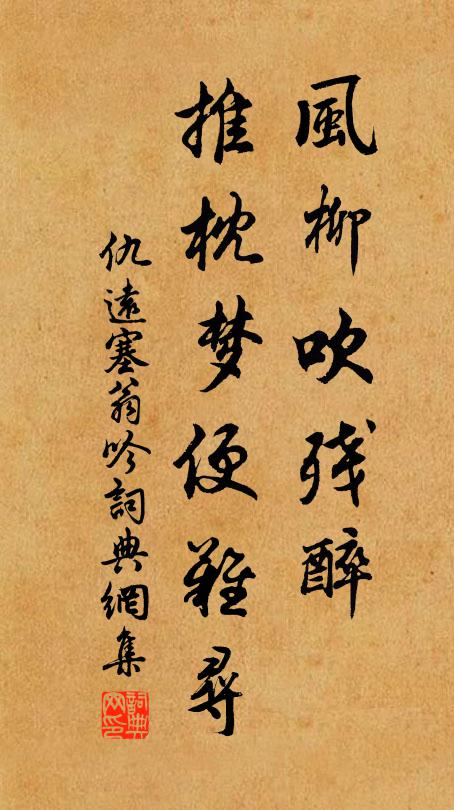 風柳吹残醉
推枕梦便難尋
仇遠塞翁吟詞典網集
詞典
网印